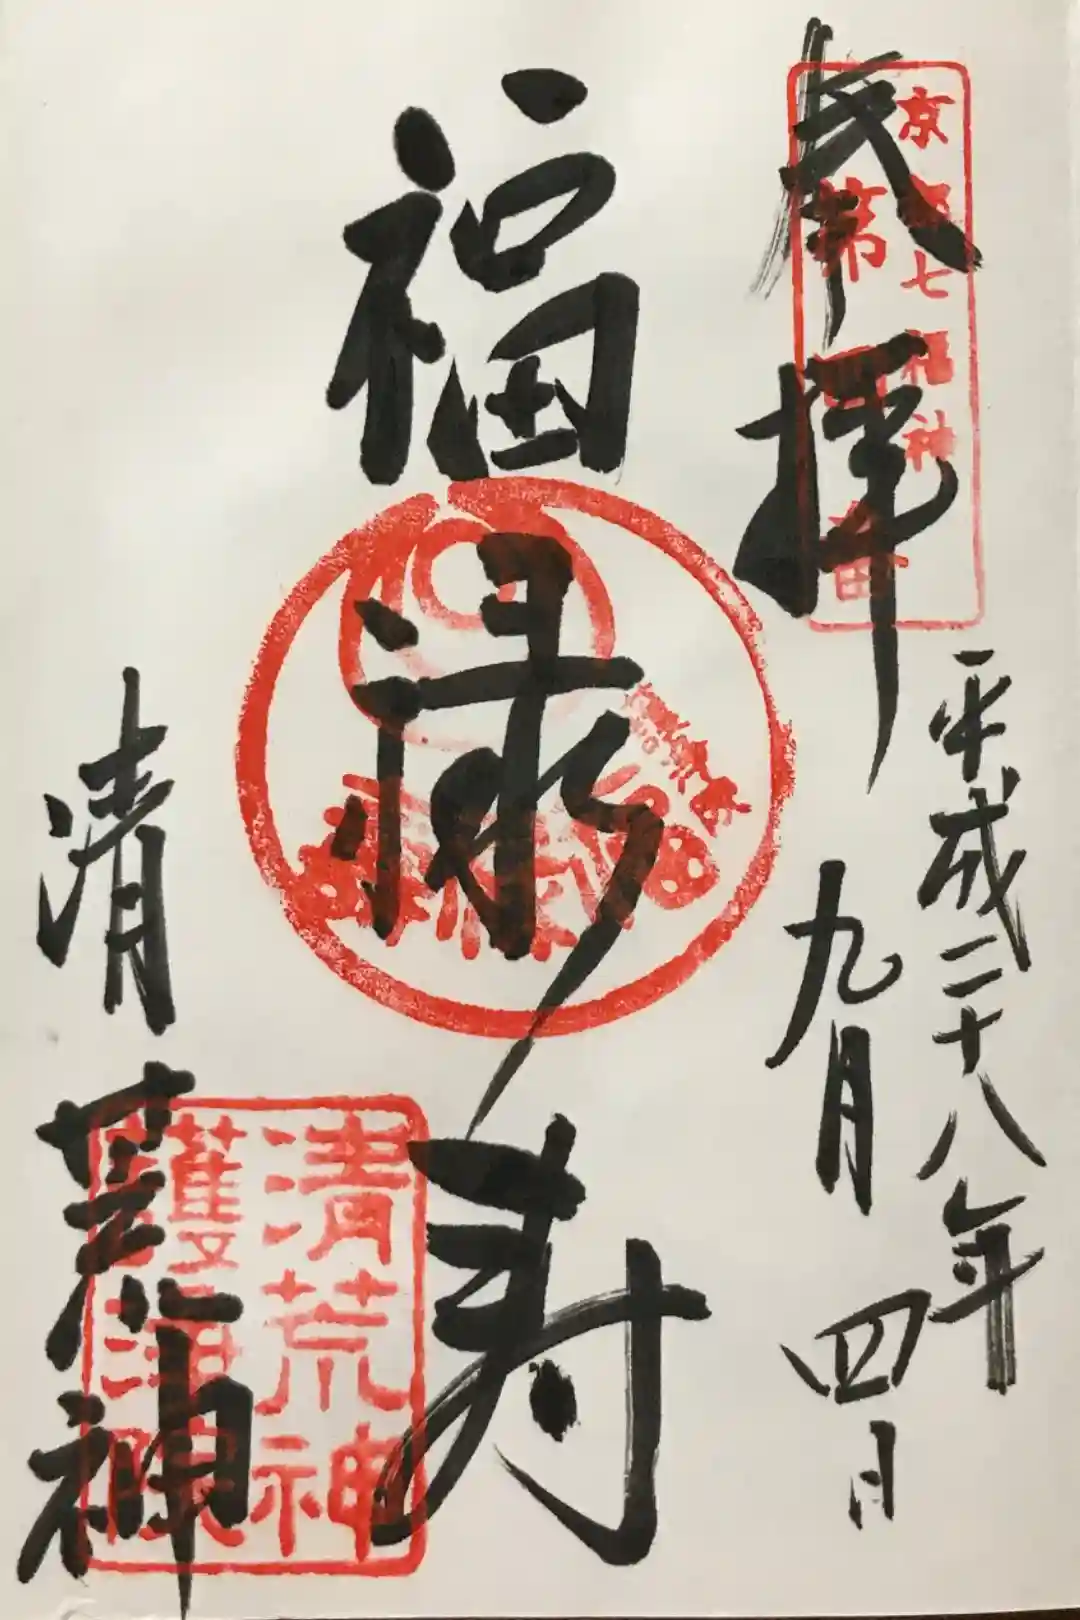 奉拝
京都七福神
第四番
平成二十八年
九月四日
福禄寿
清荒神
清荒神
護浄院